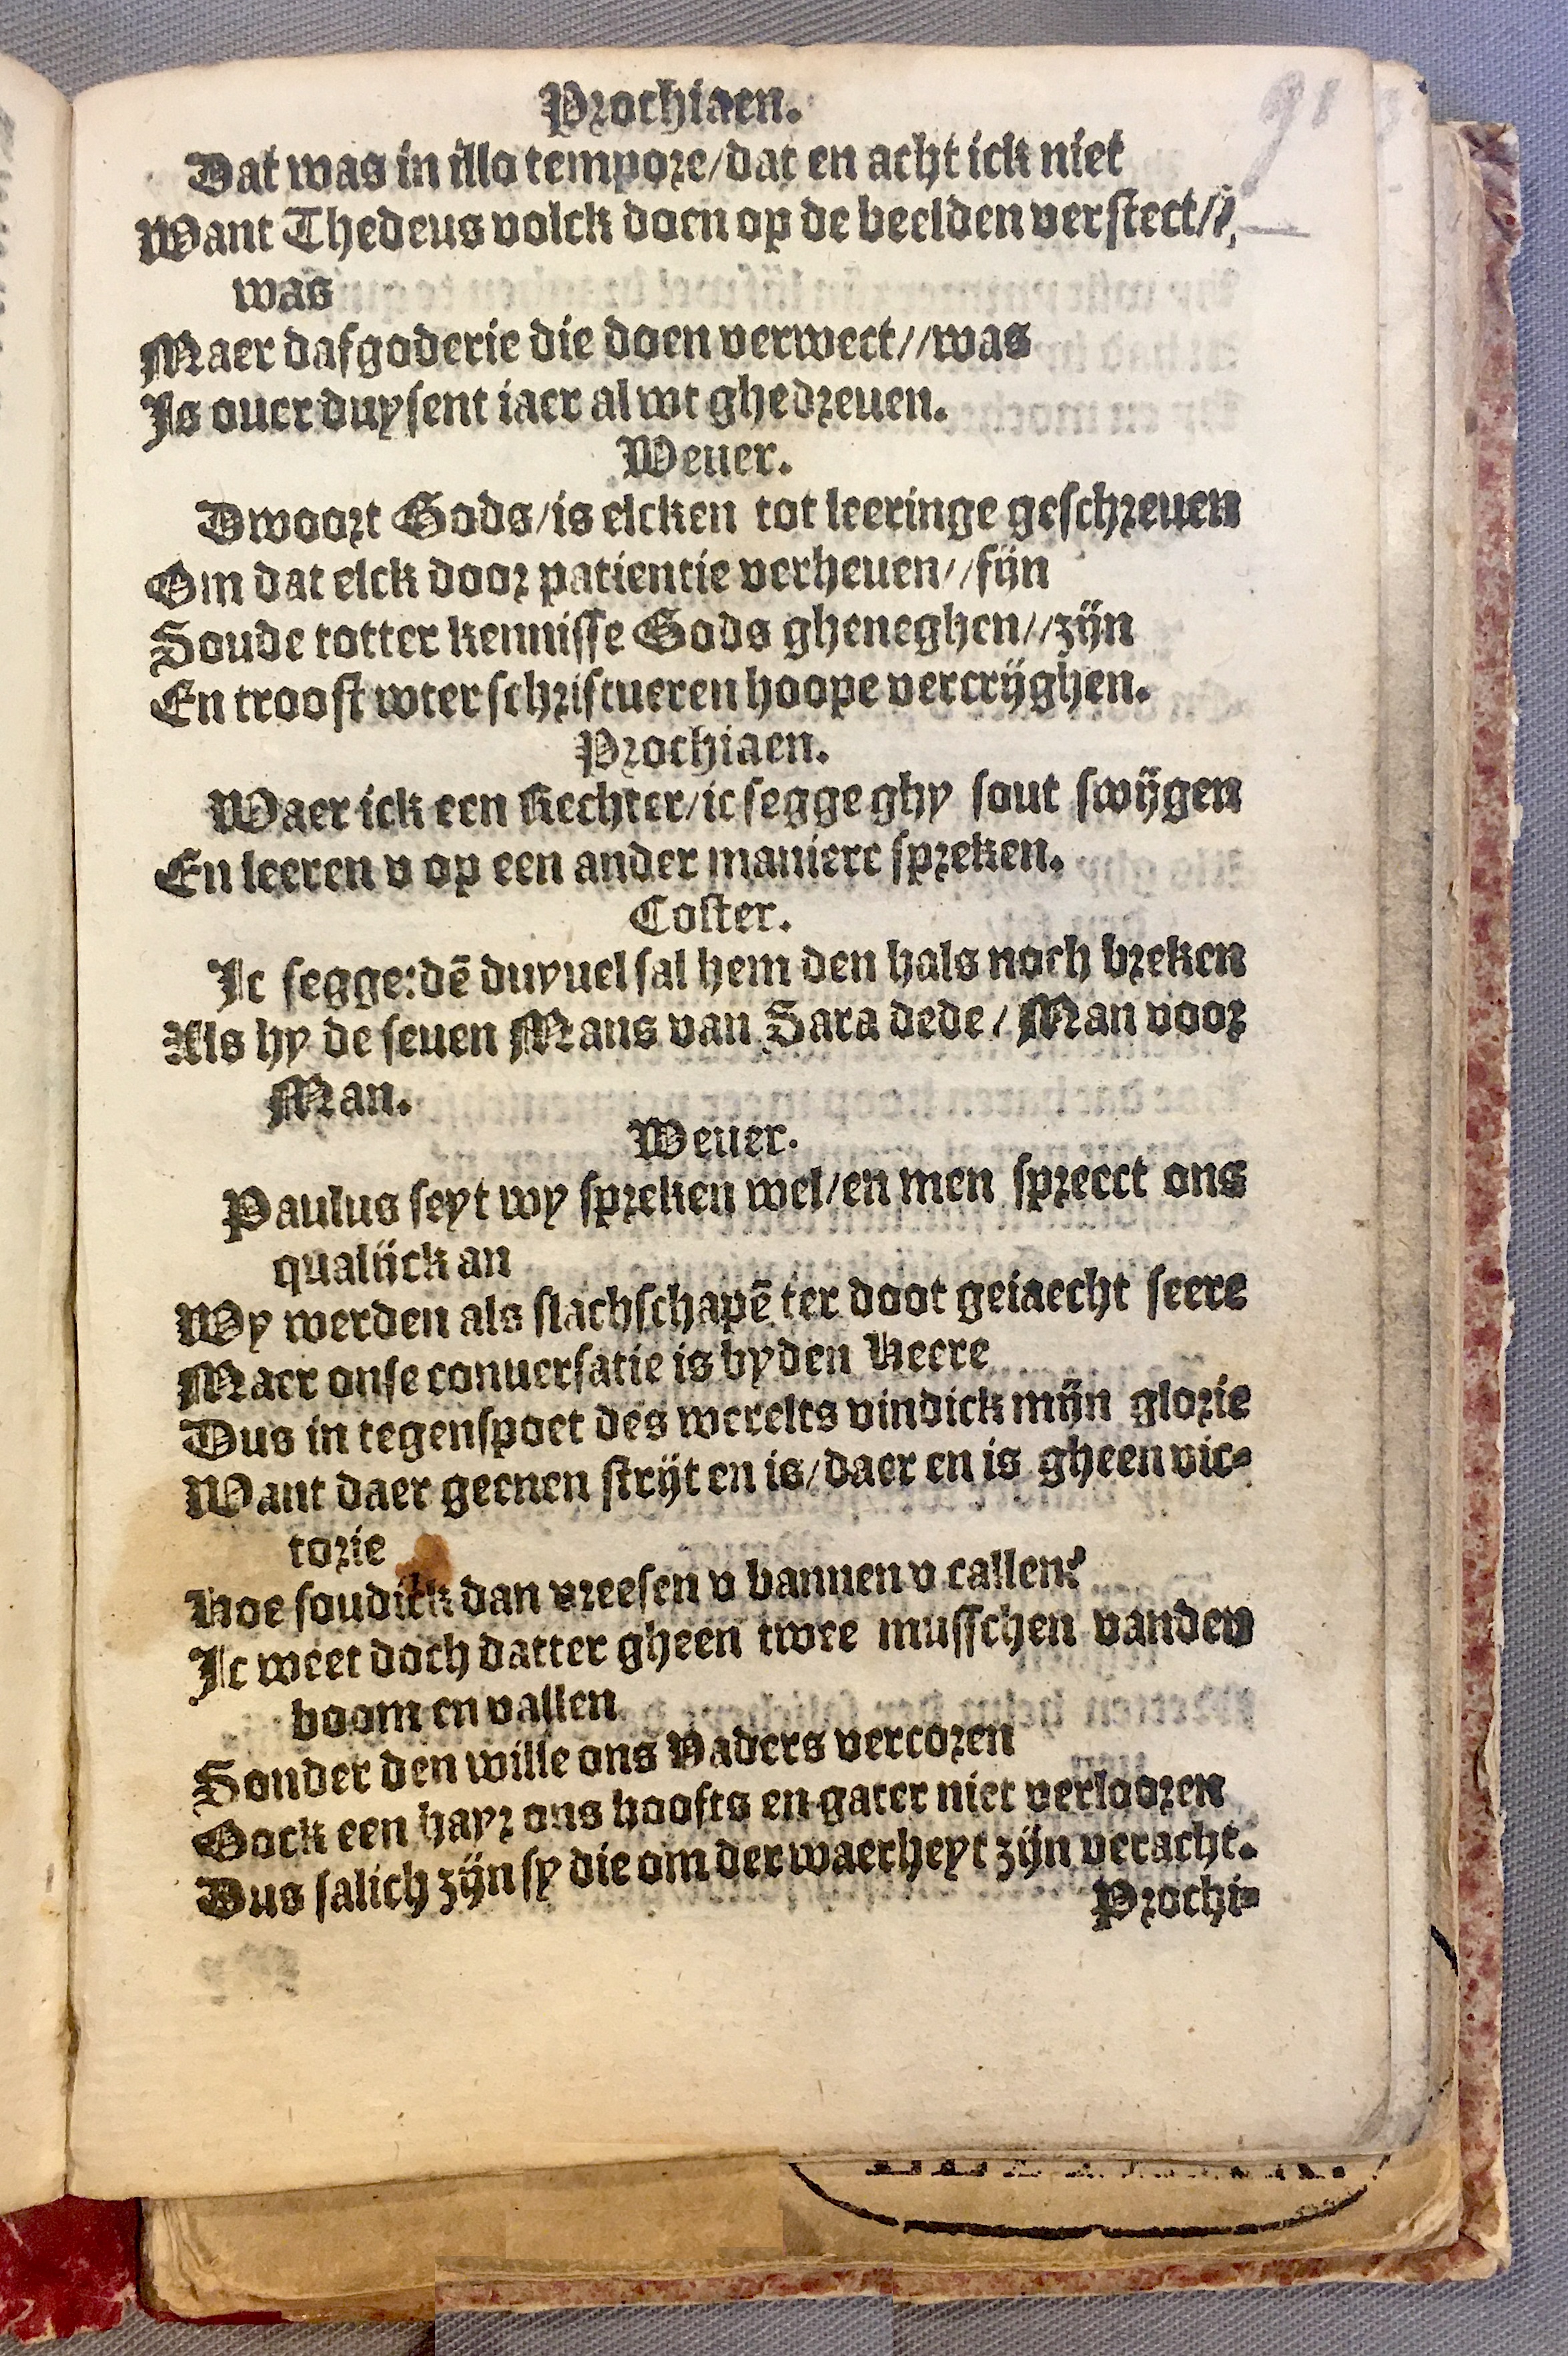 91
Prochiaen.
Dat was in illo tempore/dat en acht ick niet
Want Thedeus volck doen op de beelden verstect//
was
Maer dafgoderie die doen verwect//was
Is ouer duysent iaer al wt ghedreuen.
Weuer.
Dwoort Gods/is elcken tot leeringe geschreuen
Om dat elck door patientie verheuen//fijn
Soude totter kennisse Gods gheneghen//zijn
En troost wter schriftueren hoope vercrijghen.
Prochiaen.
Waer ick een Rechter/ic segge ghy sout swijgen
En leeren v op een ander maniere spreken.
Coster.
Ic segge:dē duyuel sal hem den hals noch breken
Als hy de seuen Mans van Sara dede/Man voor
Man.
Weuer.
Paulus seyt wy spreken wel/en men spreect ons
qualijck an
Wy werden als slachschapē ter doot geiaecht seere
Maer onse conuersatie is byden Heere
Dus in tegenspoet des werelts vindick mijn glorie
Want daer geenen strijt en is/daer en is gheen vic-
torie
Hoe soudick dan vreesen v bannen v callen?
Ic weet doch datter gheen twee musschen vanden
boom en vallen
Sonder den wille ons Vaders vercoren
Oock een hayr ons hoofts en gater niet verlooren
Dus salich zijn sy die om der waerheyt zijn veracht.
Prochi-